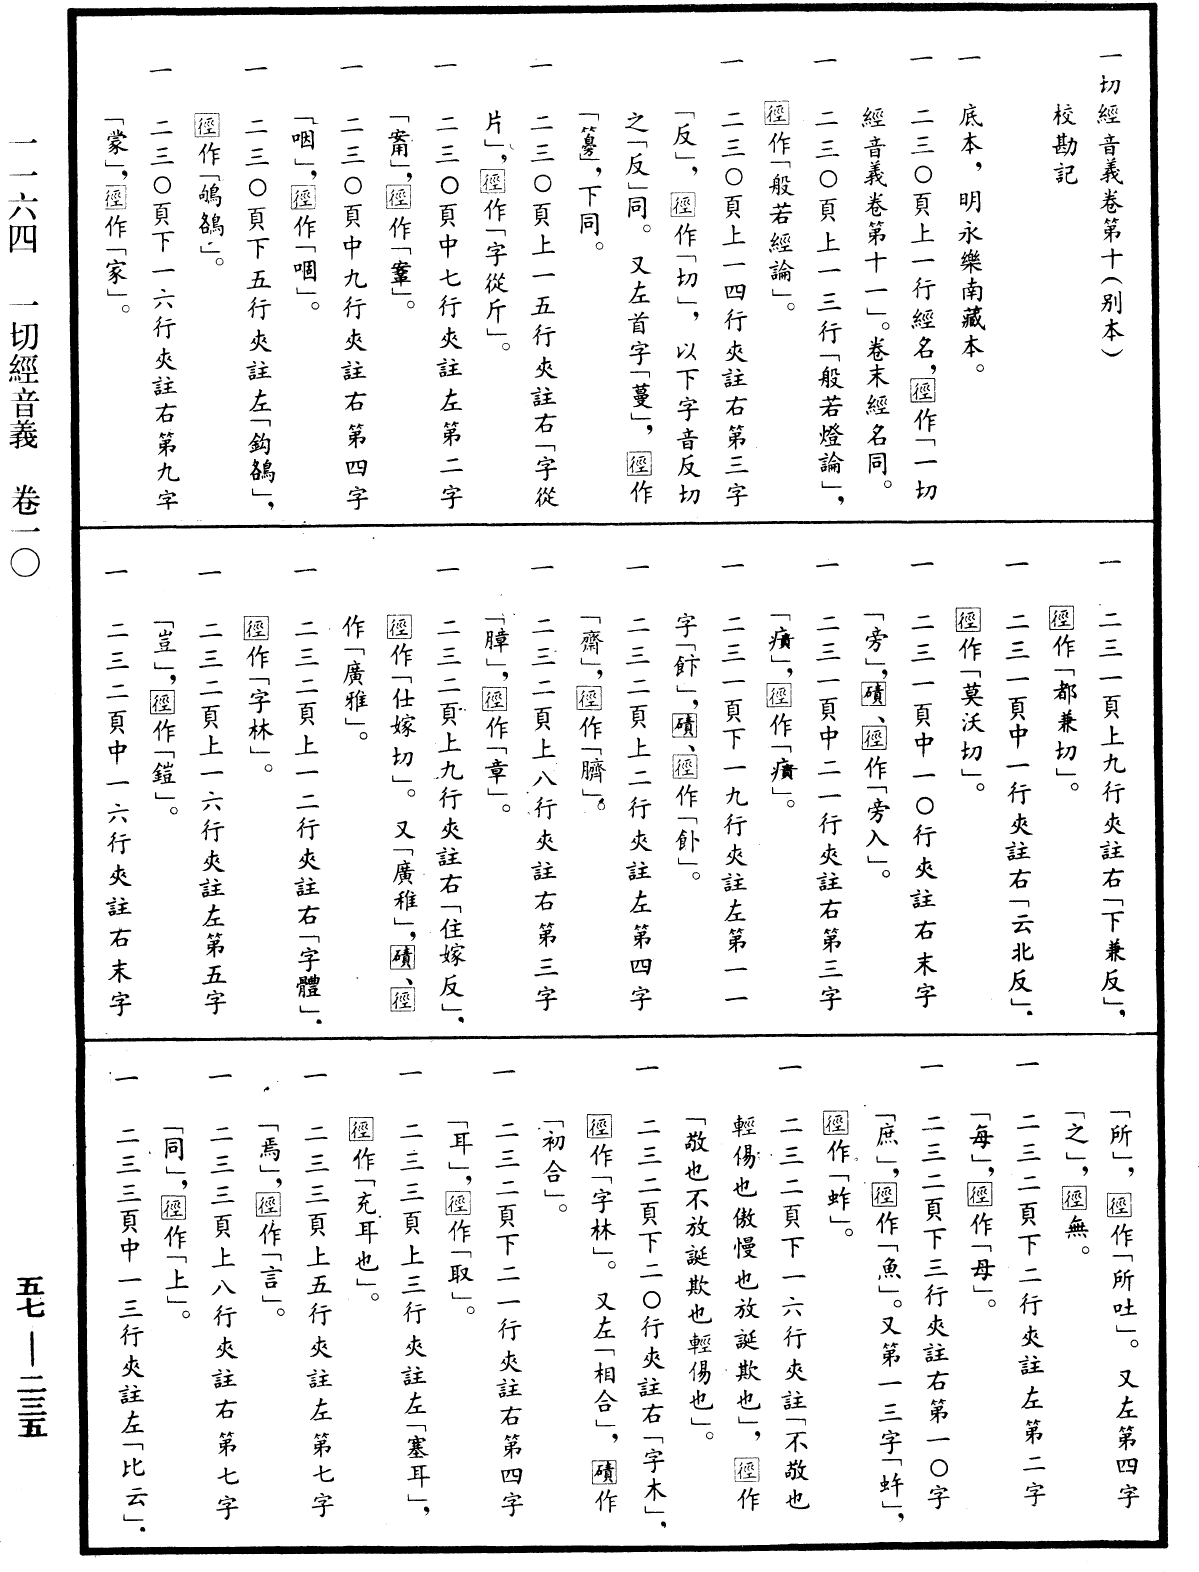 一切經音義卷第十（別本）
校勘記
一　底本，明永樂南藏本。
一　二三〇頁上一行經名，徑作「一切
經音義卷第十一」。卷末經名同。
一　二三〇頁上一三行「般若燈論」，
徑作「般若經論」。
一　二三〇頁上一四行夾註右第三字
「反」，徑作「切」，以下字音反切
之「反」同。又左首字「蔓」，徑作
「籆」，下同。
一　二三〇頁上一五行夾註右「字從
片」，徑作「字從斤」。
一　二三〇頁中七行夾註左第二字
徑作
一　二三〇頁中九行夾註右第四字
「咽」，徑作「啯」。
一　二三〇頁下五行夾註左「鈎鵅」，
徑作「鴝鵅」。
一　二三〇頁下一六行夾註右第九字
「蒙」，徑作「家」。
一　二三一頁上九行夾註右「下兼反」，
徑作「都兼切」。
一　二三一頁中一行夾註右「云北反」，
徑作「莫沃切」。
一　二三一頁中一〇行夾註右末字
「旁」，磧、徑作「旁入」。
一　二三一頁中二一行夾註右第三字
徑作
一　二三一頁下一九行夾註左第一一
字「飰」，磧、徑作「飣」。
一　二三二頁上二行夾註左第四字
「齋」，徑作「臍」。
一　二三二頁上八行夾註右第三字
「障」，徑作「章」。
一　二三二頁上九行夾註右「住嫁反」，
徑作「仕嫁切」。又「廣稚」，磧、徑
作「廣雅」。
一　二三二頁上一二行夾註右「字體」，
徑作「字林」。
一　二三二頁上一六行夾註左第五字
「豈」，徑作「鎧」。
一　二三二頁中一六行夾註右末字
「所」，徑作「所吐」。又左第四字
「之」，徑無。
一　二三二頁下二行夾註左第二字
「每」，徑作「母」。
一　二三二頁下三行夾註右第一〇字
「庶」，徑作「魚」。又第一三字「蚌」，
徑作「蚱」。
一　二三二頁下一六行夾註「不敬也
輕傷也傲慢也放誕欺也」，徑作
「敬也不放誕欺也輕傷也」。
一　二三二頁下二〇行夾註右「字木」，
徑作「字林」。又左「相合」，磧作
「初合」。
一　二三二頁下二一行夾註右第四字
「耳」，徑作「取」。
一　二三三頁上三行夾註左「塞耳」，
徑作「充耳也」。
一　二三三頁上五行夾註左第七字
「焉」，徑作「言」。
一　二三三頁上八行夾註右第七字
「同」，徑作「上」。
一　二三三頁中一三行夾註左「比云」，
一一六四　一切經音義　卷一〇
五七—二三五